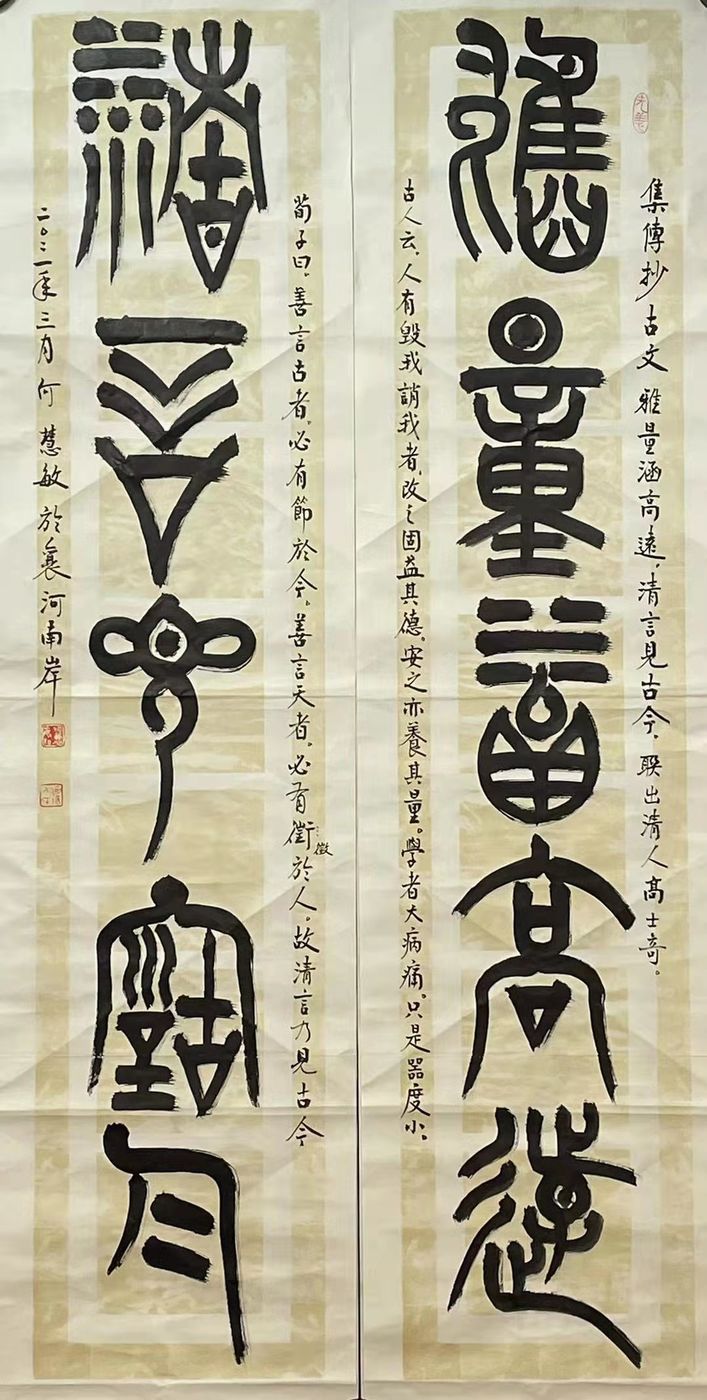 集傳抄古文雅量涵高遠，清言見古今，聯出清人高士奇。
雅量涵高遠
古人云，人有毀我誚我者，改之固益其德。安之亦養其量。學者大病痛。只是器度小。
荀子曰。善言古者。必有節於今。善言天者。必有徵於人。故清言乃見古今
徵
清言見古今
二〇二一年三月何慧敏於襄河南岸